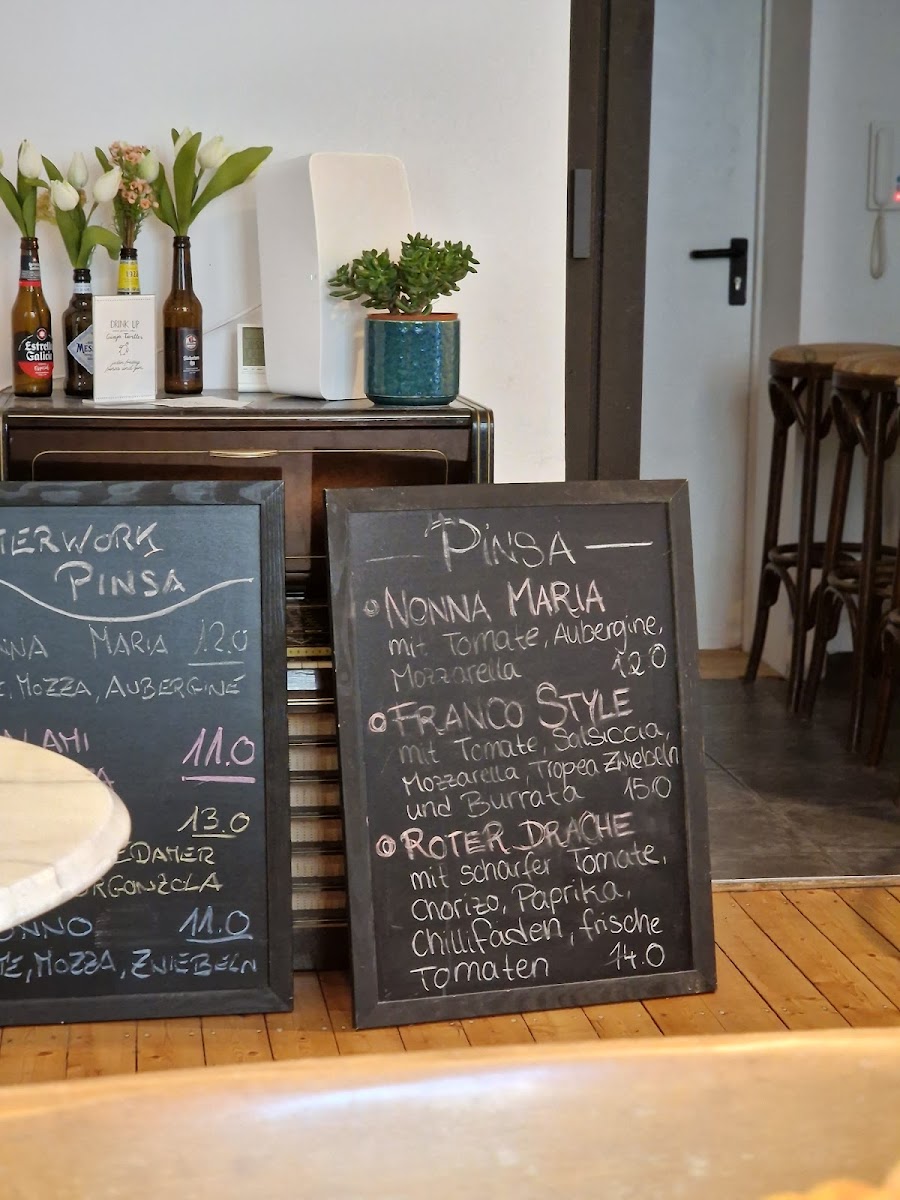 Estrella
Galicia
DRINK UP
TERWORK
PINSA
NNA MARIA 12.0
MOZZA, AUBERGINE
ALAMI 11.0
13.0
EDAMER
RGONZOLA
ONNO 11.0
TE, MOZZA, ZWIEBELN
PINSA
NONNA MARIA
mit Tomate, Aubergine,
Mozzarella 12.0
FRANCO STYLE
mit Tomate, Salsiccia,
Mozzarella, Tropea Zwiebeln
und Burrata 15.0
ROTER DRACHE
mit scharfer Tomate,
Chorizo, Paprika,
Chillifäden, frische
Tomaten 14.0